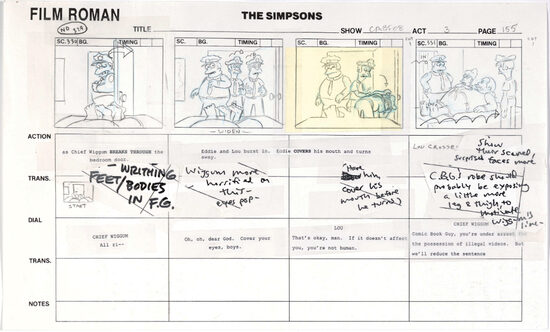 FILM ROMAN
THE SIMPSONS
TITLE
SHOW CABF08
ACT 3
PAGE 155
NO 329
SC. 330 BG. TIMING
SC. BG. TIMING
SC. BG. TIMING
SC. 331 BG. TIMING
WIDEN
ACTION
as Chief Wiggum BREAKS THROUGH the
bedroom door.
Eddie and Lou burst in.
away.
Eddie COVERS his mouth and turns
LOU CROSSE-
Show
their scared,
surprised faces more
TRANS.
START
WRITHING
FEET/BODIES
IN F.G.
Wiggum more
horrified on
this-
eyes pop-
(Have
him
cover his
mouth before
he turns)
C.B.G.'s robe should
probably be exposing
a little more
leg & thigh to
motivate
Wiggum's
line-
DIAL
CHIEF WIGGUM
All ri--
Oh, oh, dear God. Cover your
eyes, boys.
LOU
That's okay, man. If it doesn't affect
you, you're not human.
CHIEF WIGGUM
Comic Book Guy, you're under arrest for
the possession of illegal videos. But
we'll reduce the sentence
TRANS.
NOTES